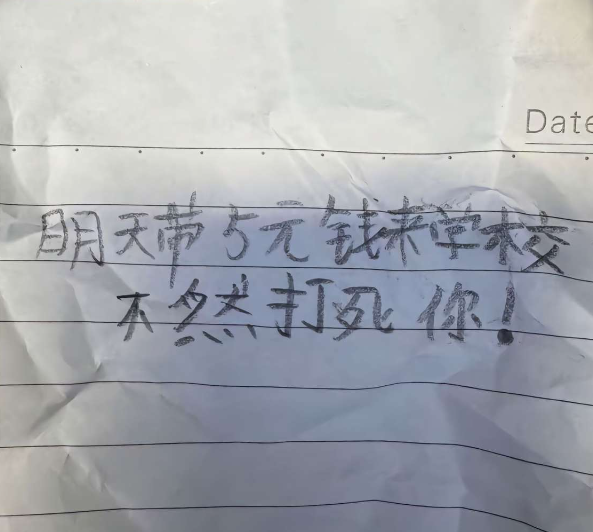 Date
明天带5元钱来学校
不然打死你!